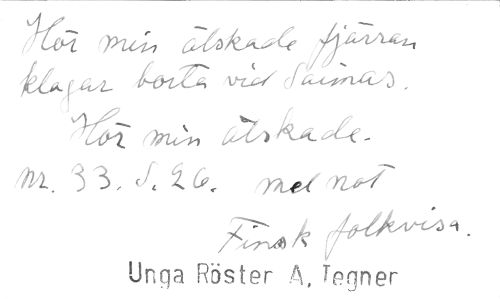 Hör min älskade fjärran
klagar borta vid Saimas.
Hör min älskade.
nr. 33. S. 26. med not
Finsk folkvisa.
Unga Röster A. Tegner